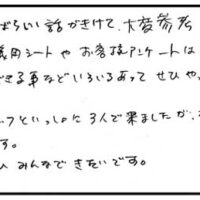 ばらしい話がきけて、大変参考
用シートや お客様アンケートは
できる事などいろいろあって ぜひや
フといっしょに3人で来ましたが、
す。
い みんなで きたいです。